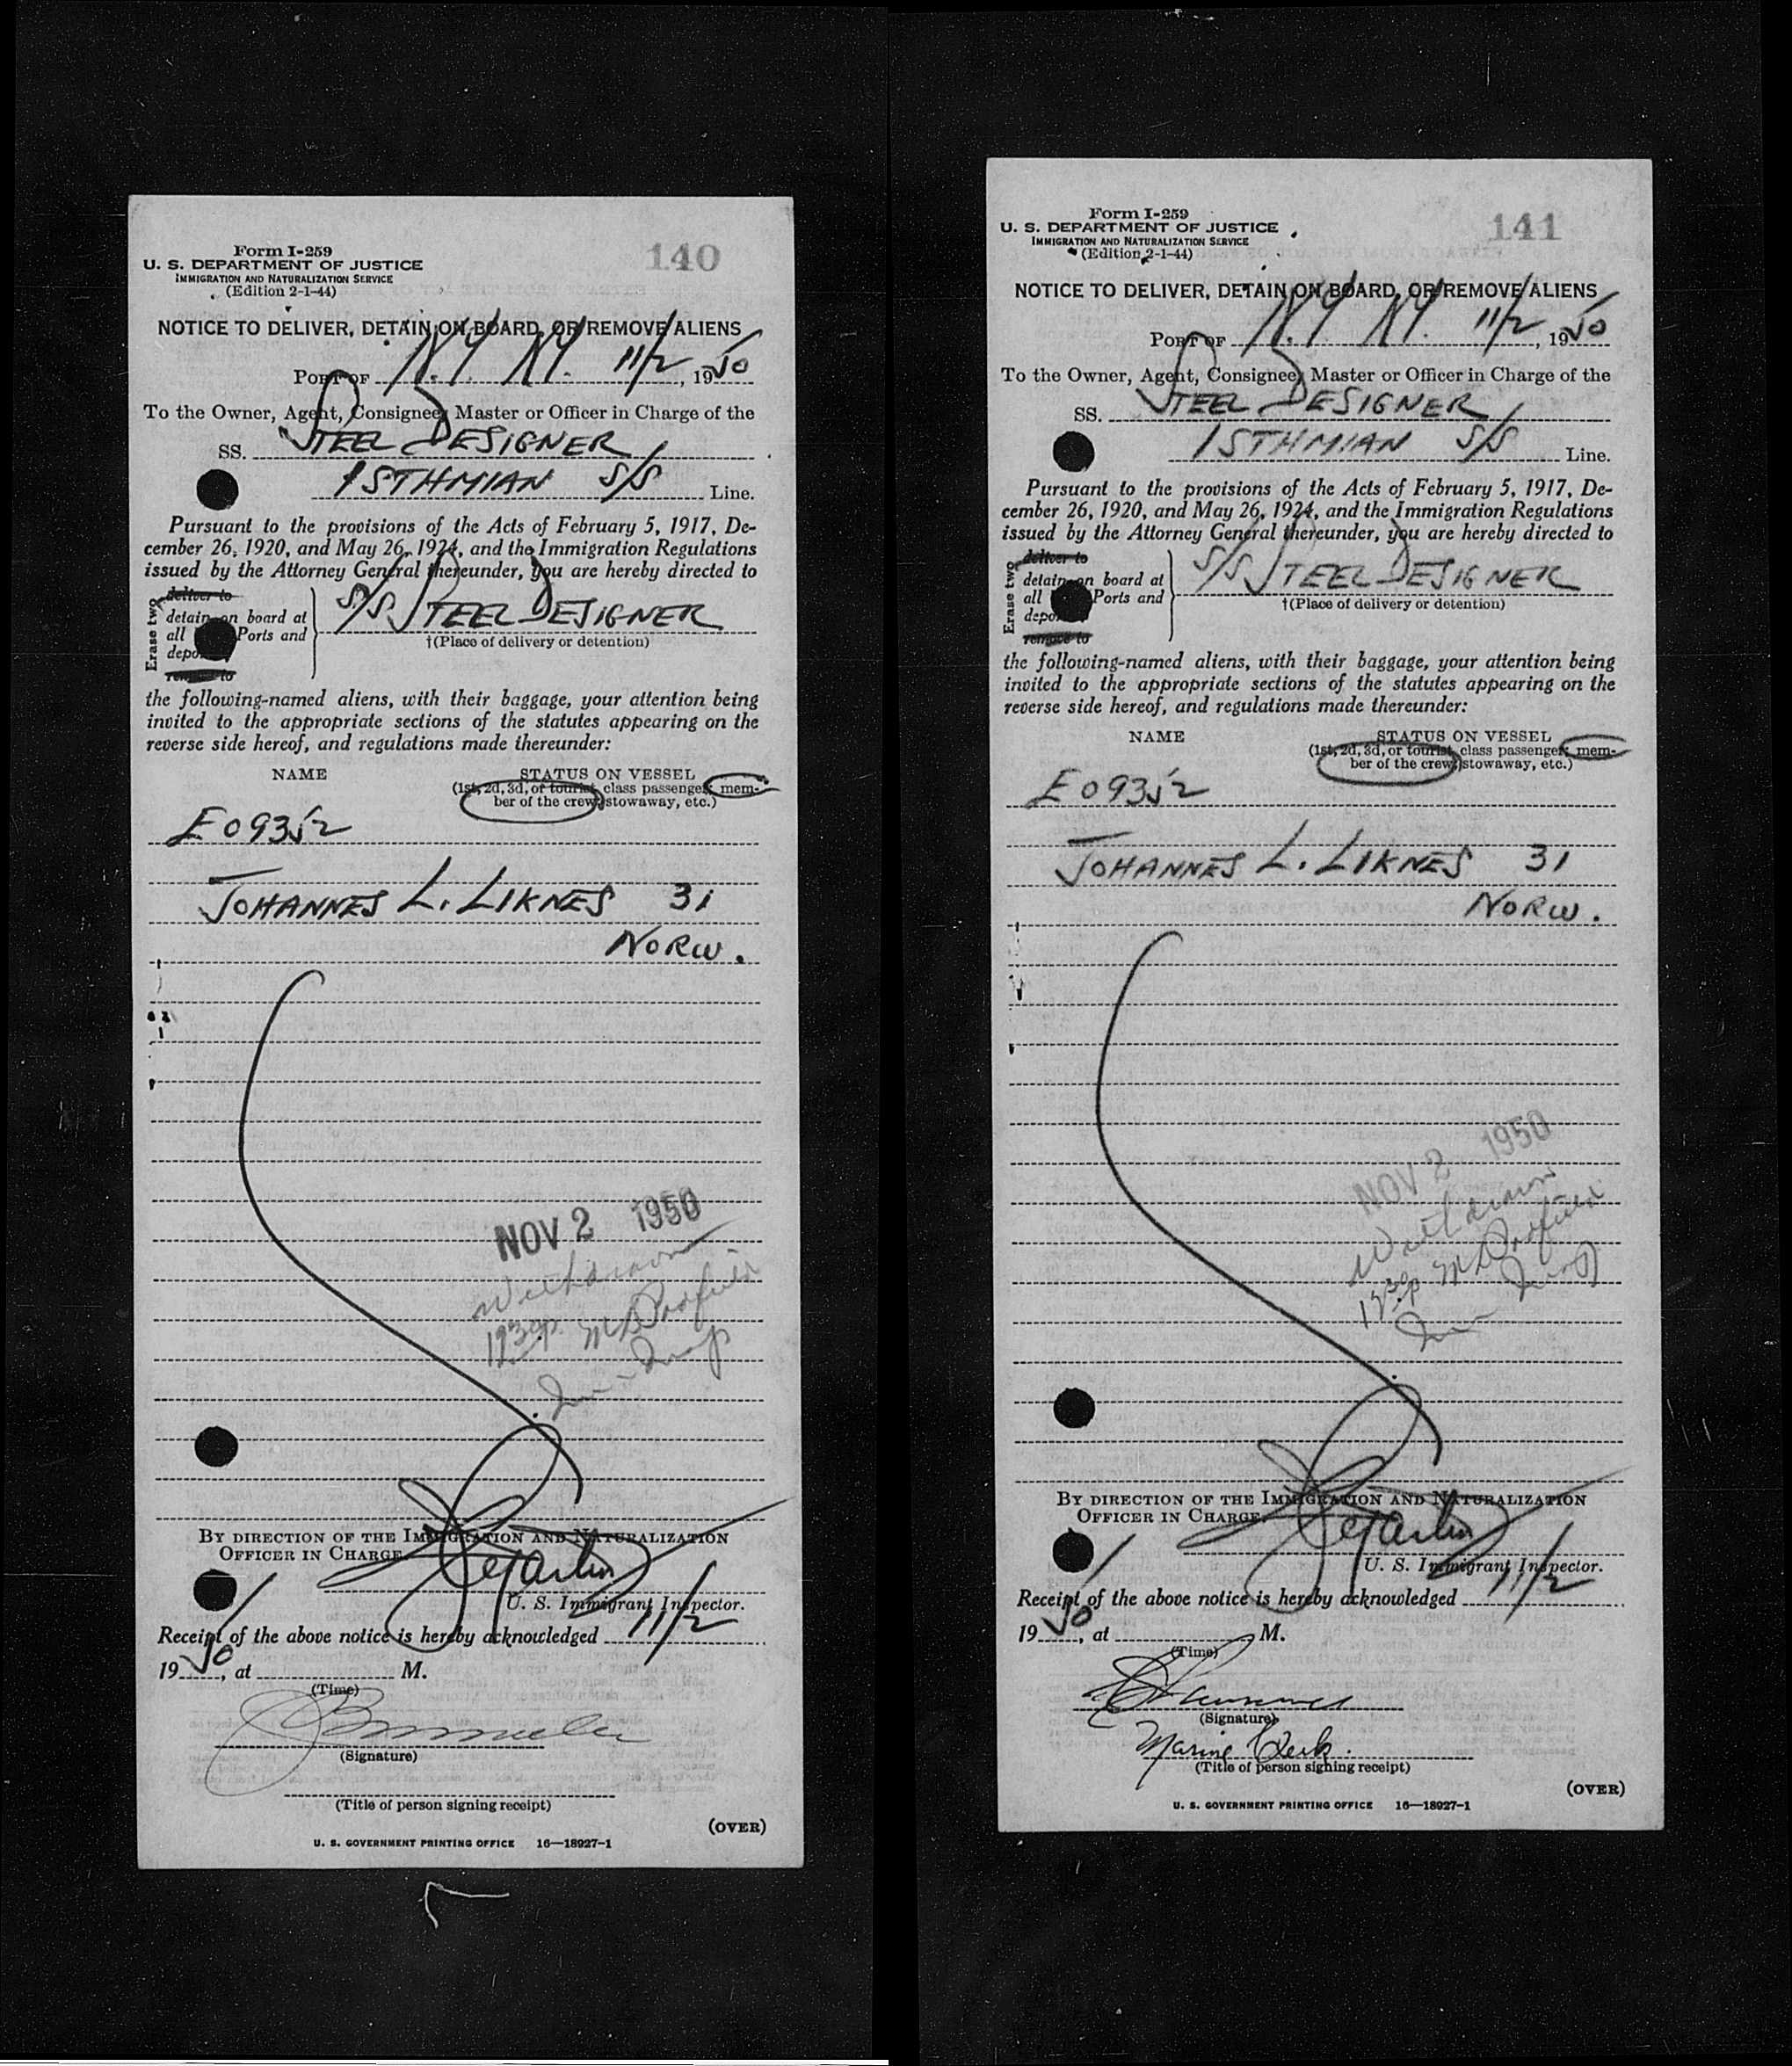 Form I-259
U. S. DEPARTMENT OF JUSTICE
IMMIGRATION AND NATURALIZATION SERVICE
(Edition 2-1-44)
140
NOTICE TO DELIVER, DETAIN ON BOARD, OR REMOVE ALIENS
PORT OF N.Y. N.Y. 11/2, 1950
To the Owner, Agent, Consignee, Master or Officer in Charge of the
SS. STEEL DESIGNER
ISTHMIAN S/S Line.
Pursuant to the provisions of the Acts of February 5, 1917, De-
cember 26, 1920, and May 26, 1924, and the Immigration Regulations
issued by the Attorney General thereunder, you are hereby directed to
Erase two
deliver to
detain on board at
all Ports and
depo
remove to
S/S. STEEL DESIGNER
†(Place of delivery or detention)
the following-named aliens, with their baggage, your attention being
invited to the appropriate sections of the statutes appearing on the
reverse side hereof, and regulations made thereunder:
NAME
STATUS ON VESSEL
(1st, 2d, 3d, or tourist class passenger; mem-
ber of the crew, stowaway, etc.)
E09352
JOHANNES L. LIKNES 31
NORW.
NOV 2 1950
Withdrawn
BY DIRECTION OF THE IMMIGRATION AND NATURALIZATION
OFFICER IN CHARGE
U. S. Immigrant Inspector.
Receipt of the above notice is hereby acknowledged 11/2
1950, at M.
(Time)
(Signature)
(Title of person signing receipt)
(OVER)
U. S. GOVERNMENT PRINTING OFFICE 16—18927-1
Form I-259
U. S. DEPARTMENT OF JUSTICE
IMMIGRATION AND NATURALIZATION SERVICE
(Edition 2-1-44)
141
NOTICE TO DELIVER, DETAIN ON BOARD, OR REMOVE ALIENS
PORT OF N.Y. N.Y. 11/2, 1950
To the Owner, Agent, Consignee, Master or Officer in Charge of the
SS. STEEL DESIGNER
ISTHMIAN S/S Line.
Pursuant to the provisions of the Acts of February 5, 1917, De-
cember 26, 1920, and May 26, 1924, and the Immigration Regulations
issued by the Attorney General thereunder, you are hereby directed to
Erase two
deliver to
detain on board at
all Ports and
depo
remove to
S/S STEEL DESIGNER
†(Place of delivery or detention)
the following-named aliens, with their baggage, your attention being
invited to the appropriate sections of the statutes appearing on the
reverse side hereof, and regulations made thereunder:
NAME
STATUS ON VESSEL
(1st, 2d, 3d, or tourist class passenger; mem-
ber of the crew, stowaway, etc.)
E09352
JOHANNES L. LIKNES 31
NORW.
NOV 2 1950
Withdrawn
BY DIRECTION OF THE IMMIGRATION AND NATURALIZATION
OFFICER IN CHARGE
U. S. Immigrant Inspector.
Receipt of the above notice is hereby acknowledged 11/2
1950, at M.
(Time)
(Signature)
Marine Clerk.
(Title of person signing receipt)
(OVER)
U. S. GOVERNMENT PRINTING OFFICE 16—18927-1